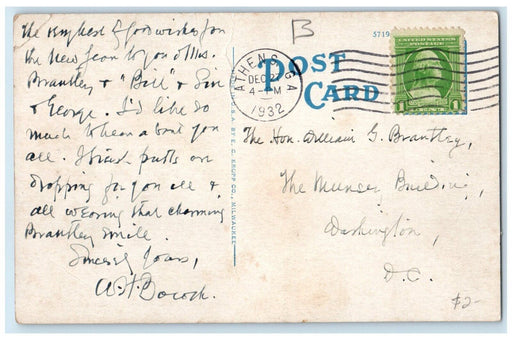 The
& good wishes for
the New Year to you & Mrs.
Brantley & "Bill" &
& George. I'd like so
much to hear about you
all. I
for you all &
all wearing that charming
Brantley smile.
Sincerely Yours,
W. H. Bocock.
B
5719
POST
CARD
ATHENS, GA
DEC 27
4-PM
1932
UNITED STATES
POSTAGE
1 1
CENT
U.S.A. BY E. C. KROPP CO., MILWAUKEE
The Hon. William G. Brantley,
The Munsey Building,
Washington,
D.C.
$2-